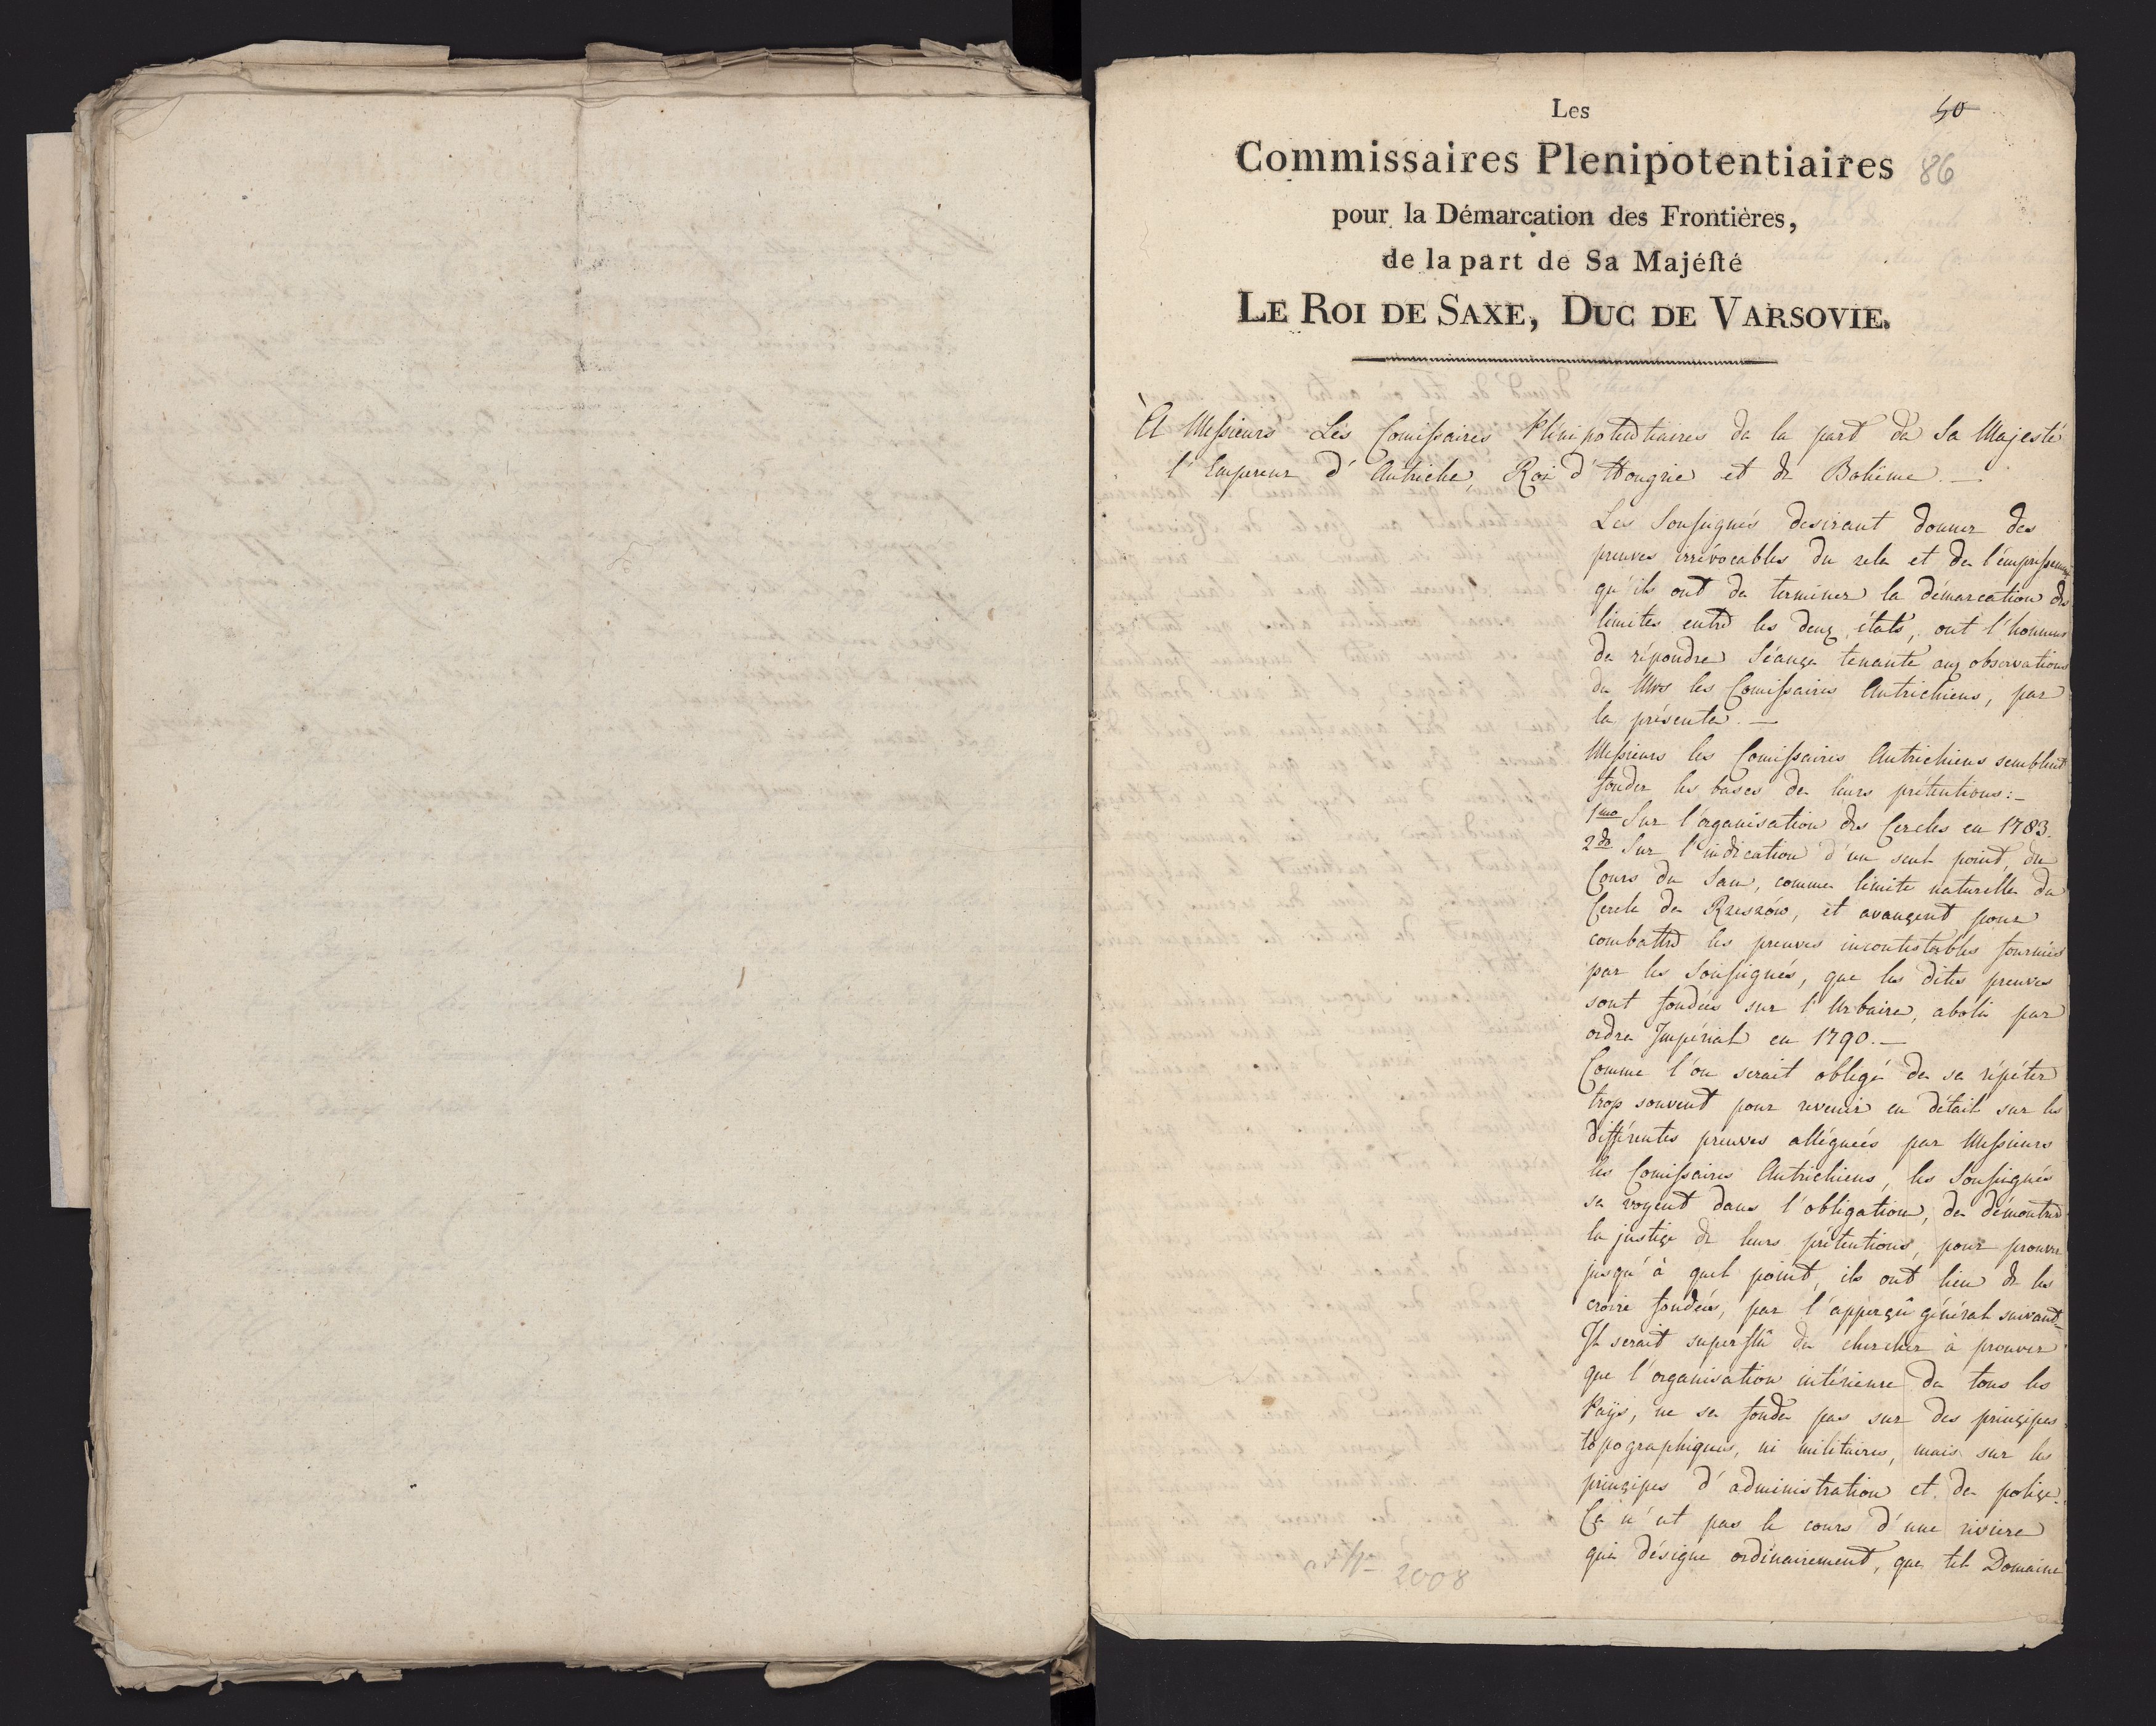 Les
50
Commissaires Plenipotentiaires
86
pour la Démarcation des Frontières,
de la part de Sa Majéſté
LE ROI DE SAXE, DUC DE VARSOVIE.
À Meſsieurs Les Comiſsaires Plénipotentiaires de la part de Sa Majesté
l'Empereur d'Autriche, Roi d'Hongrie et de Bohême. —
Les Souſsignés desirant donner des
preuves irrévocables du zele et de l'empreſsement
qu'ils ont de terminer la démarcation des
limites entre les deux états, ont l'honneur
de répondre Séance tenante aux observations
de Mrs les Comiſsaires Autrichiens, par
la présente. —
Meſsieurs les Comiſsaires Autrichiens semblent
fonder les bases de leurs prétentions: –
1mo Sur l'organisation des Cercles en 1783.
2do Sur l'indication d'un seul point, du
Cours du San, comme limite naturelle du
Cercle de Rzeszów, et avancent pour
combattre les preuves incontestables fournies
par les Souſsignés, que les dites preuves
sont fondées sur l'Urbaire, aboli par
ordre Impérial en 1790. —
Comme l'on serait obligé de se répéter
trop souvent pour revenir en détail sur les
différentes preuves alléguées par Meſsieurs
les Comiſsaires Autrichiens, les Souſsignés
se voyent dans l'obligation, de démontrer
la justice de leurs prétentions, pour prouver
jusqu'à quel point, ils ont lieu de les
croire fondées, par l'apperçû général suivant –
Il serait superflû de chercher à prouver
que l'organisation intérieure de tous les
Pays, ne se fonde pas sur des principes
topographiques, ni militaires, mais sur les
principes d'administration et de police.
Ce n'est pas le cours d'une riviere
qui désigne ordinairement, que tel Domaine
2008